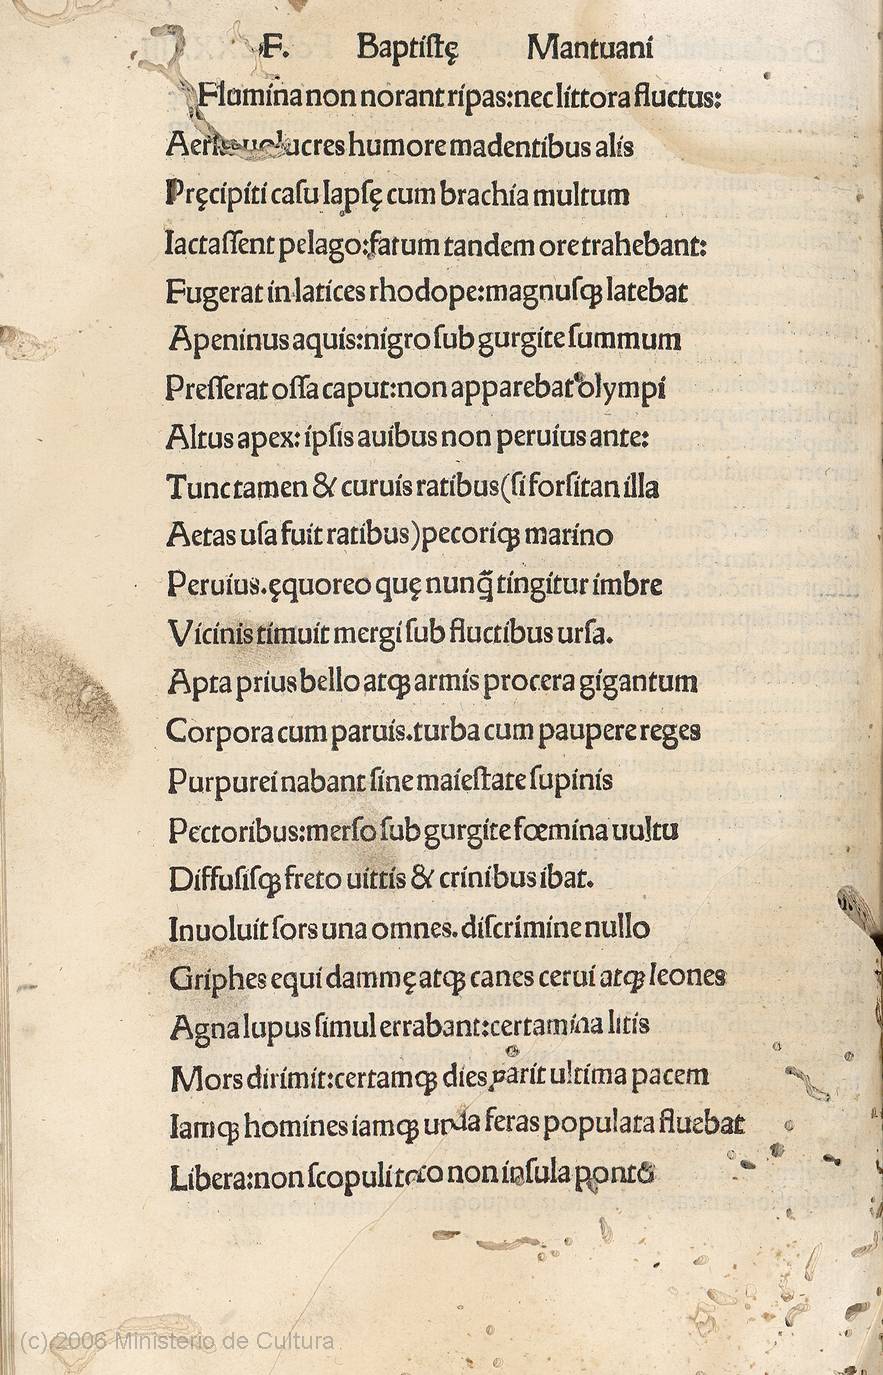 F. Baptiſtę Mantuani
Flumina non norant ripas:nec littora fluctus:
humore madentibus alis
Pręcipiti caſu lapſę cum brachia multum
Iactaſſent pelago:fatum tandem ore trahebant:
Fugerat in latices rhodope:magnuſꝗ latebat
Apeninus aquis:nigro ſub gurgite ſummum
Preſſerat oſſa caput:non apparebat olympi
Altus apex: ipſis auibus non peruius ante:
Tunc tamen & curuis ratibus(ſi forſitan illa
Aetas uſa fuit ratibus)pecoriꝗ marino
Peruius.ęquoreo quę nunq̃ tingitur imbre
Vicinis timuit mergi ſub fluctibus urſa.
Apta prius bello atꝗ armis procera gigantum
Corpora cum paruis.turba cum paupere reges
Purpurei nabant ſine maieſtate ſupinis
Pectoribus:merſo ſub gurgite fœmina uultu
Diffuſiſꝗ freto uittis & crinibus ibat.
Inuoluit ſors una omnes. diſcrimine nullo
Griphes equi dammę atꝗ canes cerui atꝗ leones
Agna lupus ſimul errabant:certamina litis
Mors dirimit:certamꝗ dies parit ultima pacem
Iamꝗ homines iamꝗ unda feras populata fluebat
Libera:non ſcopuli toto non inſula ponto
(c) 2006 Ministerio de Cultura